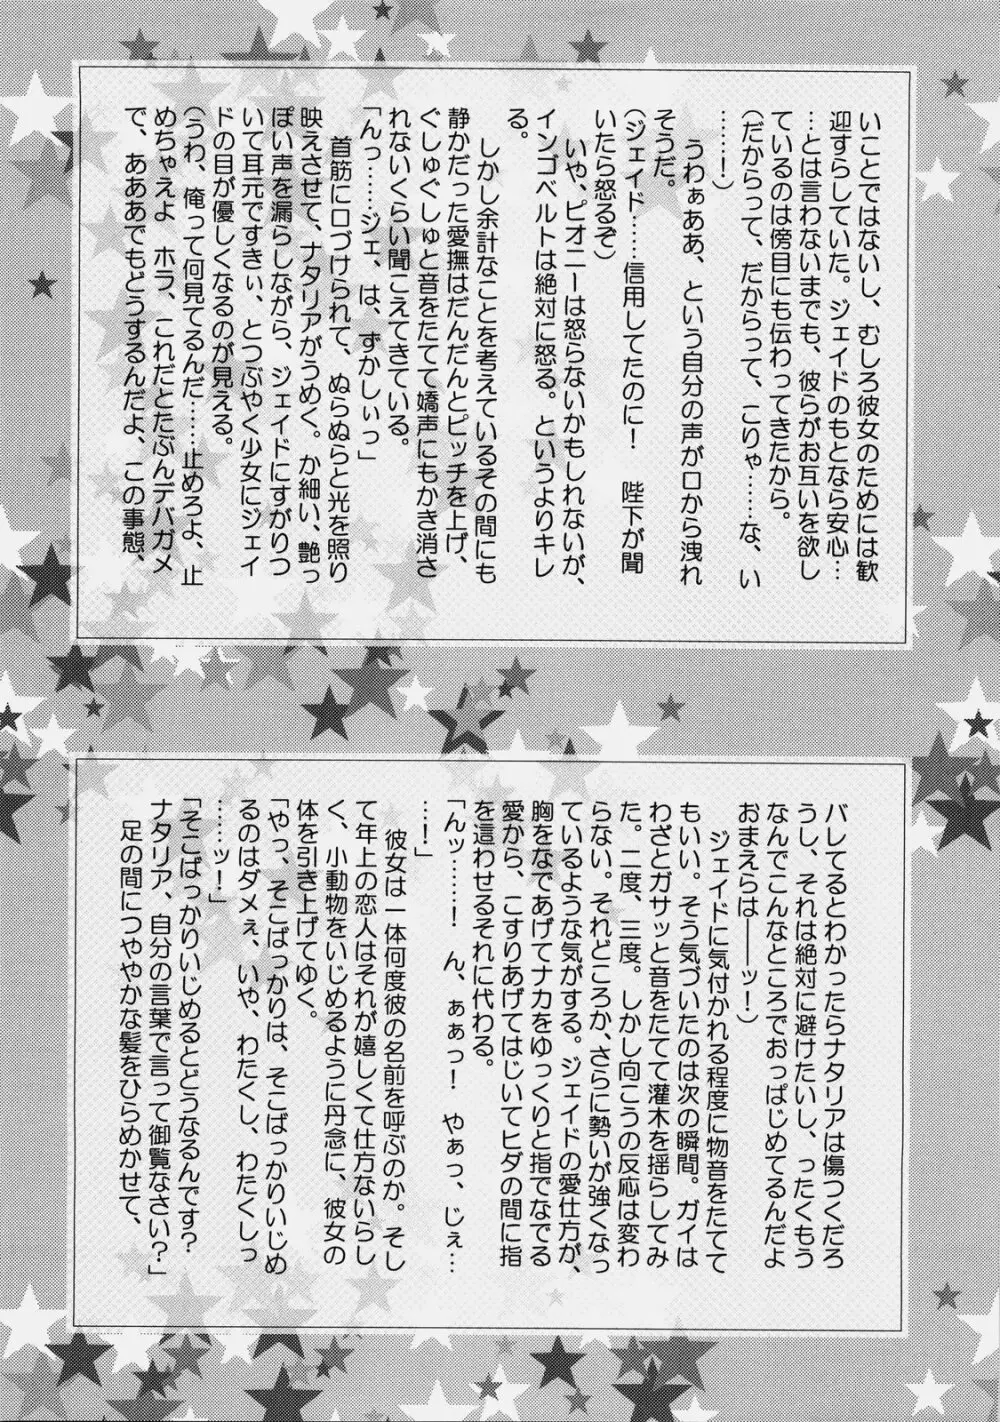 いことではないし、むしろ彼女のためには歓
迎すらしていた。ジェイドのもとなら安心…
…とは言わないまでも、彼らがお互いを欲し
ているのは傍目にも伝わってきたから。
（だからって、だからって、こりゃ……な、い
……！）
　うわぁああ、という自分の声が口から洩れ
そうだ。
（ジェイド……信用してたのに！　陛下が聞
いたら怒るぞ）
　いや、ピオニーは怒らないかもしれないが、
インゴベルトは絶対に怒る。というよりキレ
る。
　しかし余計なことを考えているその間にも
静かだった愛撫はだんだんとピッチを上げ、
ぐしゅぐしゅと音をたてて嬌声にもかき消さ
れないくらい聞こえてきている。
「んっ……ジェ、は、ずかしぃっ」
　首筋に口づけられて、ぬらぬらと光を照り
映えさせて、ナタリアがうめく。か細い、艶っ
ぽい声を漏らしながら、ジェイドにすがりつ
いて耳元ですきぃ、とつぶやく少女にジェイ
ドの目が優しくなるのが見える。
（うわ、俺って何見てるんだ……止めろよ、止
めちゃえよ　ホラ、これだとたぶんデバガメ
で、あああでもどうするんだよ、この事態、
バレてるとわかったらナタリアは傷つくだろ
うし、それは絶対に避けたいし、ったくもう
なんでこんなところでおっぱじめてるんだよ
おまえらは――ッ！）
　ジェイドに気付かれる程度に物音をたてて
もいい。そう気づいたのは次の瞬間。ガイは
わざとガサッと音をたてて灌木を揺らしてみ
た。二度、三度。しかし向こうの反応は変わ
らない。それどころか、さらに勢いが強くなっ
ているような気がする。ジェイドの愛仕方が、
胸をなであげてナカをゆっくりと指でなでる
愛から、こすりあげてはじいてヒダの間に指
を這わせるそれに代わる。
「んッ……！　ん、ぁぁっ！　やぁっ、じぇ…
…！」
　彼女は一体何度彼の名前を呼ぶのか。そし
て年上の恋人はそれが嬉しくて仕方ないらし
く、小動物をいじめるように丹念に、彼女の
体を引き上げてゆく。
「やっ、そこばっかりは、そこばっかりいじめ
るのはダメぇ、いや、わたくし、わたくしっ
……ッ！」
「そこばっかりいじめるとどうなるんです？
ナタリア、自分の言葉で言って御覧なさい？」
　足の間につややかな髪をひらめかせて、